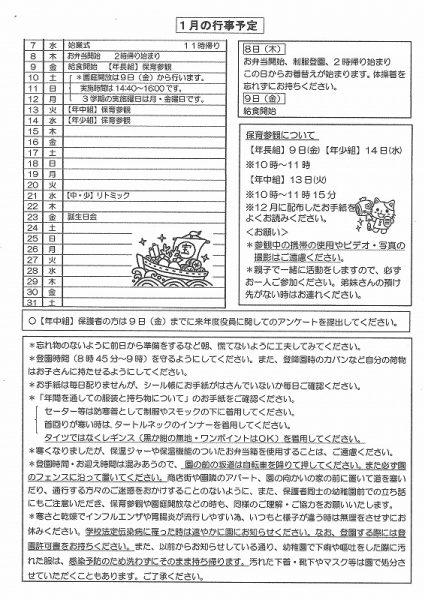 1月の行事予定
7 水 始業式 11時帰り
8 木 お弁当開始 2時帰り始まり
9 金 給食開始 【年長組】保育参観
10 土 *園庭開放は9日(金)から行います。
11 日 実施時間は14:40〜16:00です。
12 月 3学期の実施曜日は月・金曜日です。
13 火 【年中組】保育参観
14 水 【年少組】保育参観
15 木
16 金
17 土
18 日
19 月
20 火
21 水 【中・少】リトミック
22 木
23 金 誕生日会
24 土
25 日
26 月
27 火
28 水
29 木
30 金
31 土
8日(木)
お弁当開始、制服登園、2時帰り始まり
この日からお着替えが始まります。体操着を
忘れずにお持ちください。
9日(金)
給食開始
保育参観について
【年長組】9日(金)【年少組】14日(水)
※10時〜11時
【年中組】13日(火)
※10時〜11時15分
※12月に配布したお手紙を
よくお読みください。
<お願い>
*参観中の携帯の使用やビデオ・写真の
撮影はご遠慮ください。
*親子で一緒に活動をしますので、必ず
お一人ご参加ください。弟妹さんの預け
先がない時はお連れください。
宝
〇【年中組】保護者の方は9日(金)までに来年度役員に関してのアンケートを提出してください。
*忘れ物のないように前日から準備をするなど朝、慌てないように工夫してみてください。
*登園時間(8時45分〜9時)を守るようにしてください。また、登降園時のカバンなど自分の荷物
はお子さんに持たせるようにしてください。
*お手紙は毎日配りませんが、シール帳にお手紙がはさんでいないか毎日ご確認ください。
*「年間を通しての服装と持ち物について」のお手紙をご確認ください。
セーター等は防寒着として制服やスモックの下に着用してください。
首回りが寒い時は、タートルネックのインナーを着用してください。
タイツではなくレギンス(黒か紺の無地・ワンポイントはOK)を着用してください。
*寒くなりましたが、保温ジャーや保温機能のついたお弁当箱を使用することは、ご遠慮ください。
*登園時間・お迎え時間は混みあうので、園の前の坂道は自転車を降りて押してください。また必ず園
のフェンスに沿って置いてください。商店街や園隣のアパート、園の向かいの家の前に置いて道を塞い
だり、通行する方々のご迷惑をおかけすることのないように、また、保護者同士の幼稚園前での立ち話
にもご注意いただき、保育参観や園庭開放などの時も、同様のご理解・ご協力をお願いいたします。
*寒さと乾燥でインフルエンザや胃腸炎が流行しやすい為、いつもと様子が違う時は無理をさせずにお
休みください。学校法定伝染病に罹った時は速やかに園にお知らせください。なお、登園する際には登
園許可書をお持ちください。また、以前からお知らせしている通り、幼稚園で下痢や嘔吐をした際に汚
れた服は、感染予防のため洗わずにそのまま持ち帰ります。汚れた下着・靴下やマスク等は園で処分さ
せていただくこともあります。ご了承ください。